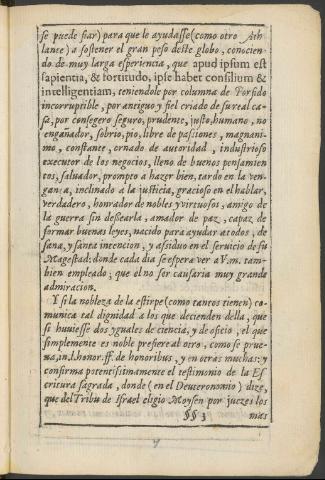 se puede fiar) para que le ayudasse (como otro Ath
lante) a sostener el gran peso deste globo, conocien-
do de muy larga esperiencia, que apud ipsum est
sapientia, & fortitudo, ipse habet consilium &
intelligentiam, teniendole por columna de Porfido
incorruptible, por antiguo y fiel criado de su real ca-
sa, por consegero seguro, prudente, justo, humano, no
engañador, sobrio, pio, libre de passiones, magnani-
mo, constante, ornado de autoridad, industrioso
executor de los negocios, lleno de buenos pensamien
tos, salvador, prompto a hazer bien, tardo en la ven-
gança, inclinado a la justicia, gracioso en el hablar,
verdadero, honrador de nobles y virtuosos, amigo de
la guerra sin dessearla, amador de paz, capaz de
formar buenas leyes, nacido para ayudar a todos, de
sana, y santa intencion, y assiduo en el servicio de su
Magestad; donde cada dia se espera ver a V.m. tam-
bien empleado; que el no ser causaria muy grande
admiracion.
Y si la nobleza de la estirpe (como tantos tienen) co-
munica tal dignidad a los que decienden della, que
si huviesse dos yguales de ciencia, y de oficio, el que
simplemente es noble prefiere al otro, como se prue-
va, in l. honor. ff. de honoribus, y en otras muchas: y
confirma potentissimamente el testimonio de la Es
critura sagrada, donde (en el Deuteronomio) dize,
que del Tribu de Israel eligio Moysen por juezes los
§§ 3
mas